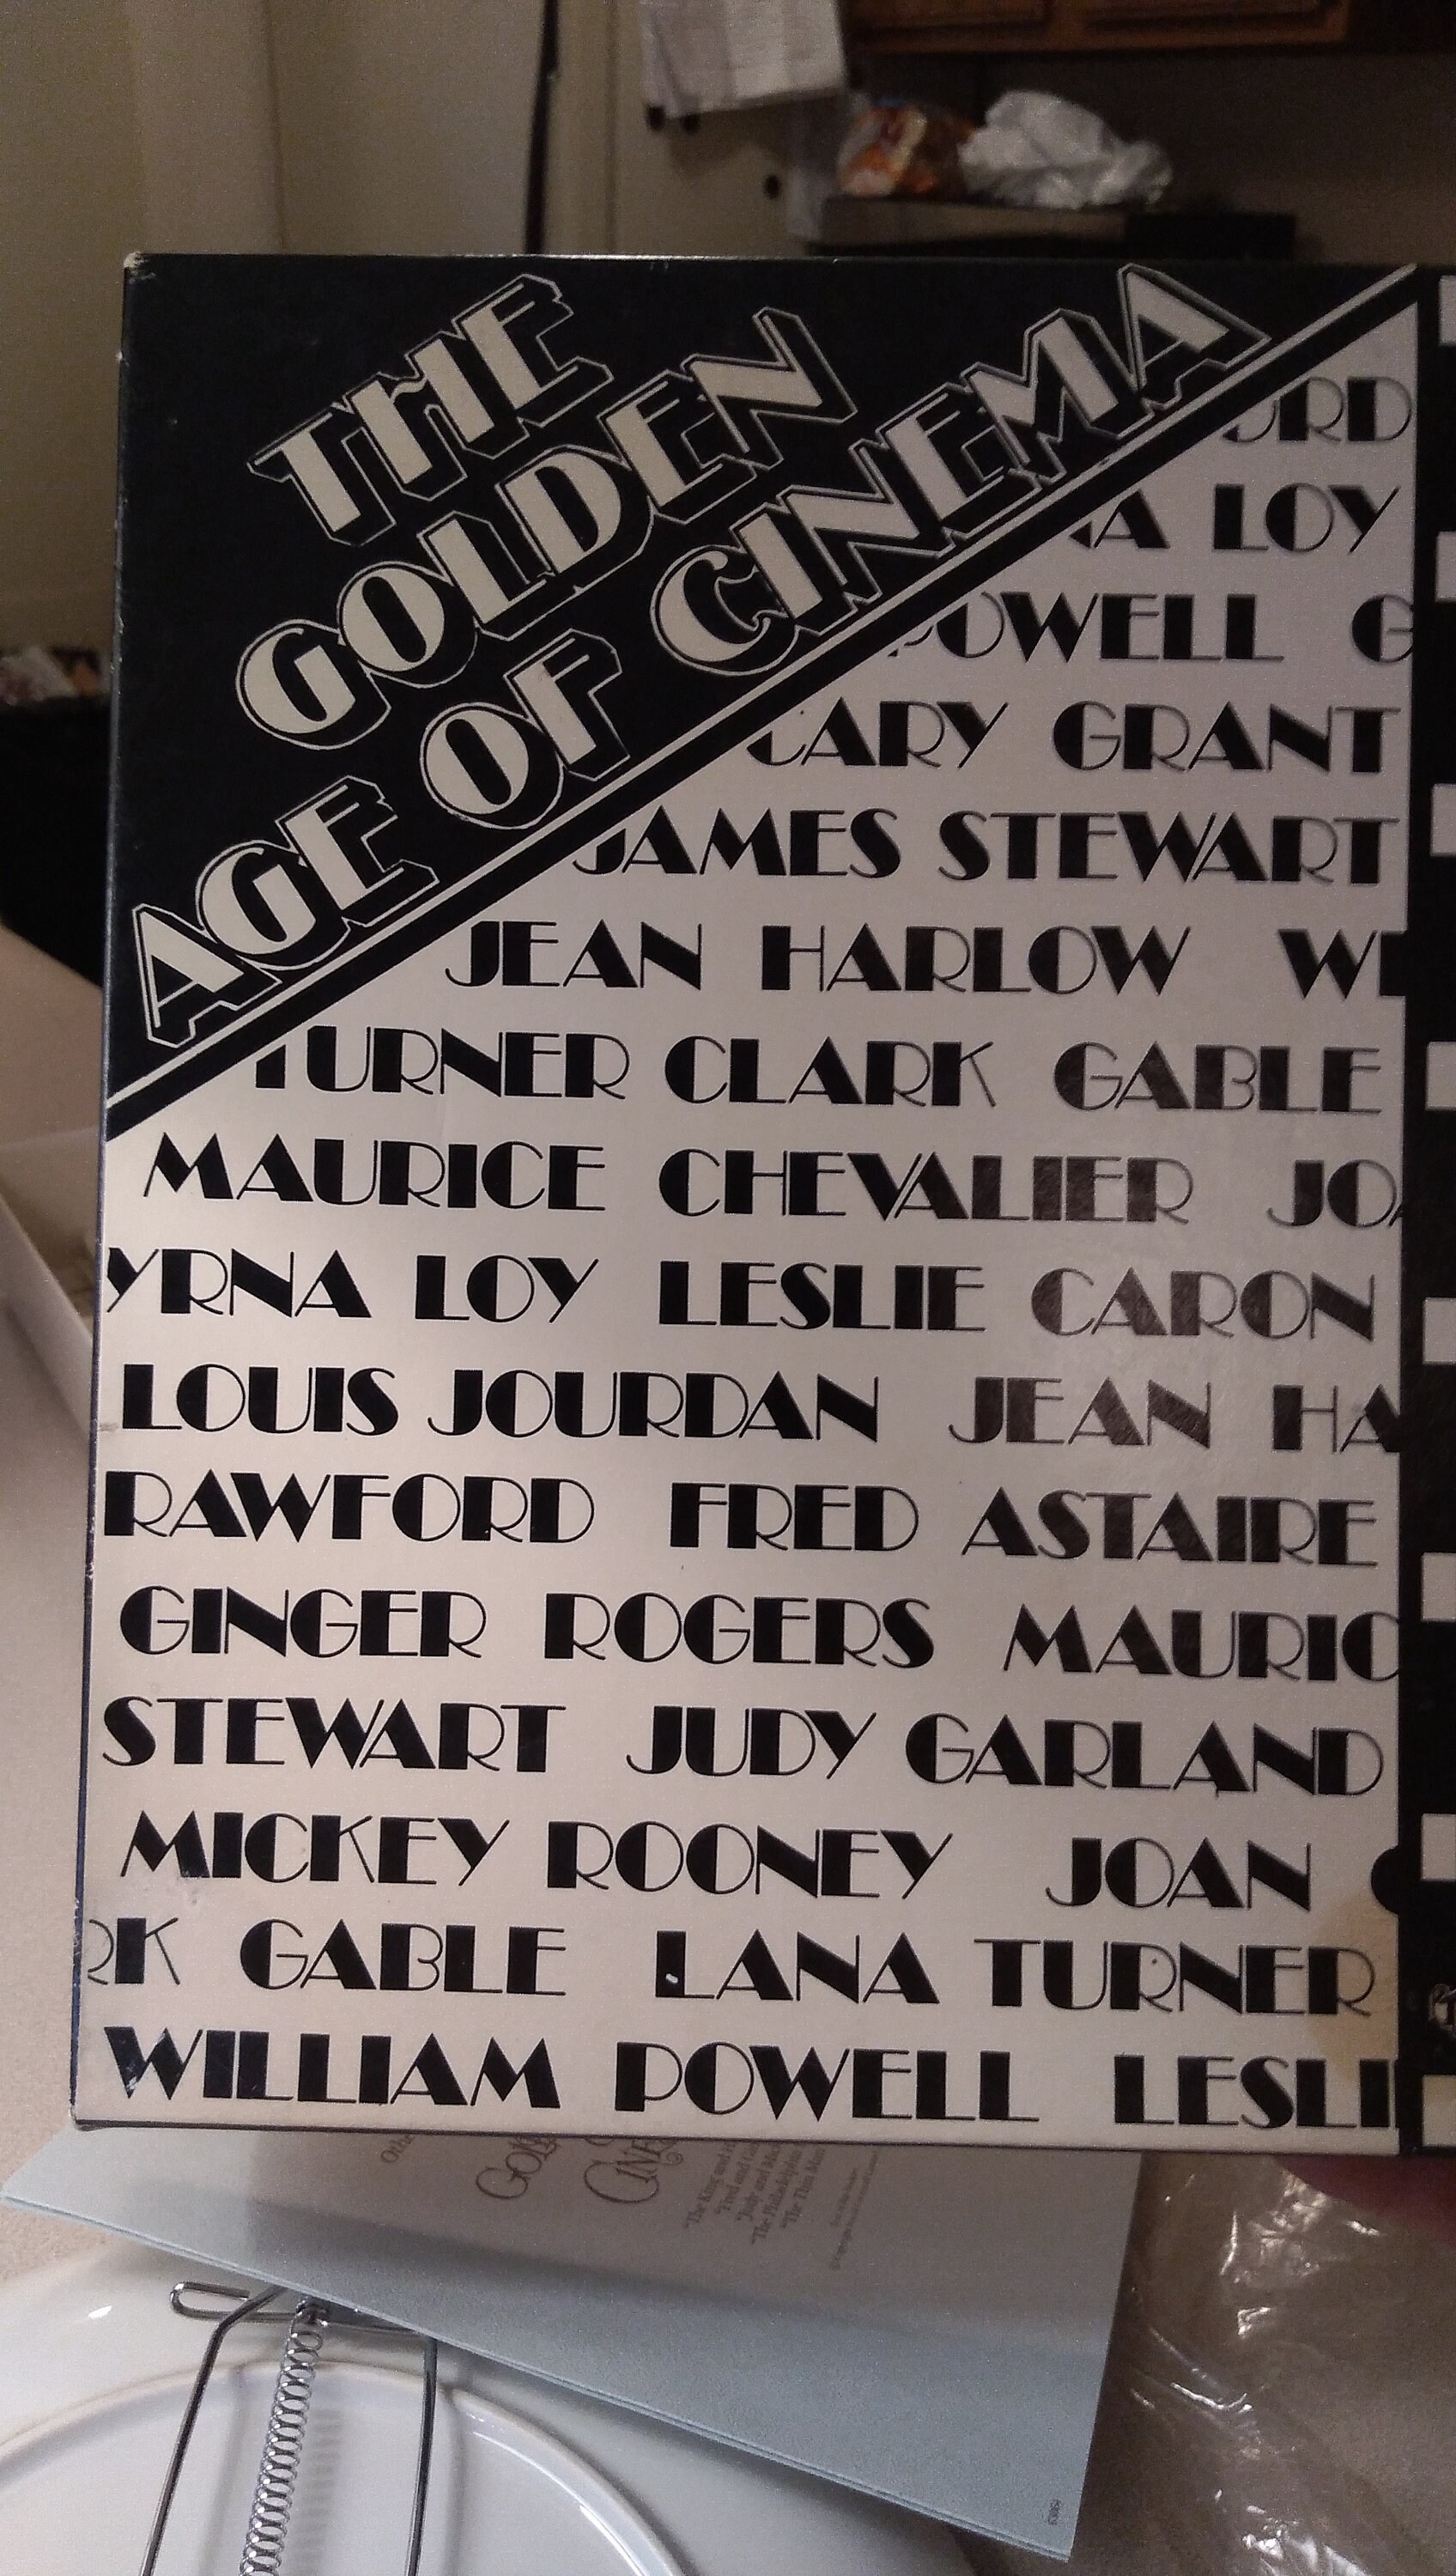 THE
GOLDEN
AGE OF CINEMA
RD
A LOY
POWELL G
CARY GRANT
JAMES STEWART
JEAN HARLOW WI
TURNER CLARK GABLE
MAURICE CHEVALIER JOA
YRNA LOY LESLIE CARON
LOUIS JOURDAN JEAN HA
RAWFORD FRED ASTAIRE
GINGER ROGERS MAURIC
STEWART JUDY GARLAND
MICKEY ROONEY JOAN
RK GABLE LANA TURNER
WILLIAM POWELL LESLI
Othe
GOL
CINE
"The King and
"Fred and
"Judy and
"The Philadelphia
"The Thin Man